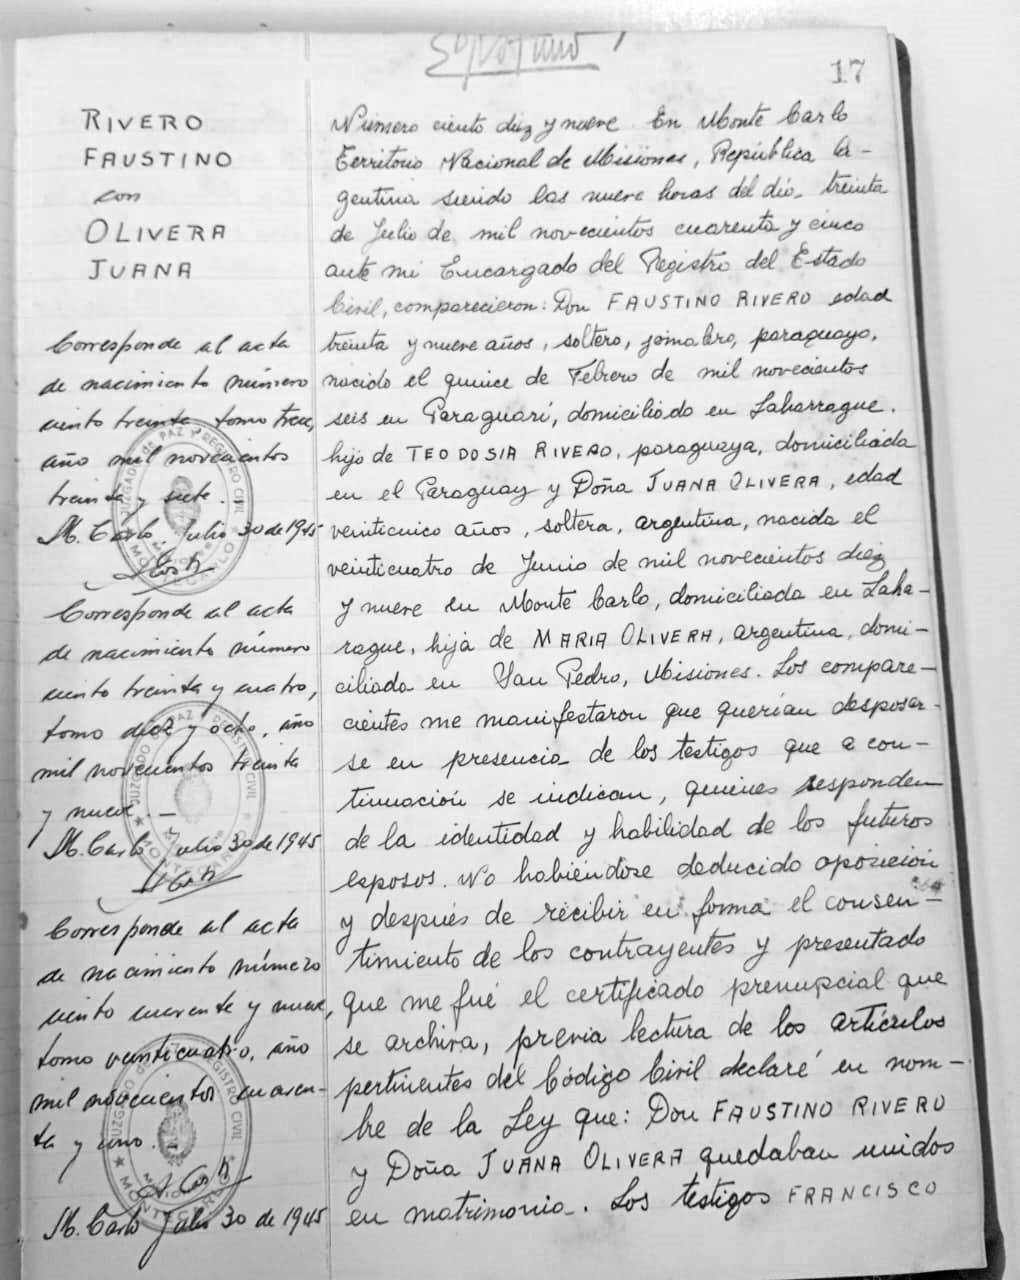 17
RIVERO
FAUSTINO
con
OLIVERA
JUANA
Corresponde al acta
de nacimiento número
ciento treinta tomo trece,
año mil novecientos
treinta y siete. _
M. Carlo, Julio 30 de 1945
Corresponde al acta
de nacimiento número
ciento treinta y cuatro,
tomo diez y ocho, año
mil novecientos treinta
y nueve. _
M. Carlo Julio 30 de 1945
Corresponde al acta
de nacimiento número
ciento cuarenta y nueve,
tomo veinticuatro, año
mil novecientos cuaren-
ta y uno. _
M. Carlo Julio 30 de 1945
Número ciento diez y nueve. En Monte Carlo
Territorio Nacional de Misiones, República Ar-
gentina siendo las nueve horas del día treinta
de Julio de mil novecientos cuarenta y cinco
ante mi Encargado del Registro del Estado
Civil, comparecieron: Don FAUSTINO RIVERO edad
treinta y nueve años, soltero, jornalero, paraguayo,
nacido el quince de Febrero de mil novecientos
seis en Paraguarí, domiciliado en Laharrague.
hijo de TEODOSIA RIVERO, paraguaya, domiciliada
en el Paraguay y Doña JUANA OLIVERA, edad
veinticinco años, soltera, argentina, nacida el
veinticuatro de Junio de mil novecientos diez
y nueve en Monte Carlo, domiciliada en Laha-
rague, hija de MARIA OLIVERA, argentina, domi-
ciliada en San Pedro, Misiones. Los compare-
cientes me manifestaron que querían desposar-
se en presencia de los testigos que a con-
tinuación se indican, quienes responden
de la identidad y habilidad de los futuros
esposos. No habiéndose deducido oposición
y después de recibir en forma el consen-
timiento de los contrayentes y presentado
que me fué el certificado prenupcial que
se archiva, previa lectura de los artículos
pertinentes del Código Civil declaré en nom-
bre de la Ley que: Don FAUSTINO RIVERO
y Doña JUANA OLIVERA quedaban unidos
en matrimonio. Los testigos FRANCISCO
JUZGADO de PAZ Y REGISTRO CIVIL
MISIONES
★ MONTECARLO ★
JUZGADO de PAZ Y REGISTRO CIVIL
★ MONTECARLO ★
JUZGADO de PAZ Y REGISTRO CIVIL
MISIONES
★ MONTECARLO ★